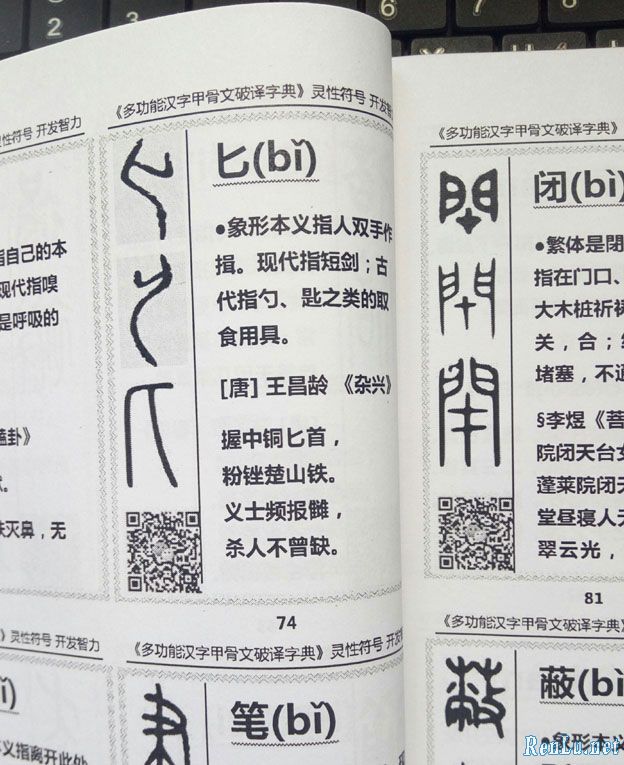 性符号 开发智力
指自己的本
现代指嗅
是呼吸的
卦》
灭鼻，无
《多功能汉字甲骨文破译字典》灵性符号 开发
匕(bǐ)
●象形本义指人双手作
揖。现代指短剑；古
代指勺、匙之类的取
食用具。
[唐] 王昌龄 《杂兴》
握中铜匕首，
粉锉楚山铁。
义士频报雠，
杀人不曾缺。
74
《多功能汉字甲骨文破译字典》
闭(bì)
●繁体是閉
指在门口、
大木桩祈
关，合；
堵塞，不
§李煜《菩
院闭天台女
蓬莱院闭天
堂昼寝人无
翠云光，
81
符号 开发智力
义指离开此处
《多功能汉字甲骨文破译字典》灵性符号 开发
笔(bǐ)
《多功能汉字甲骨文破译字典》
蔽(bì)
●象形本义
RenLu.net